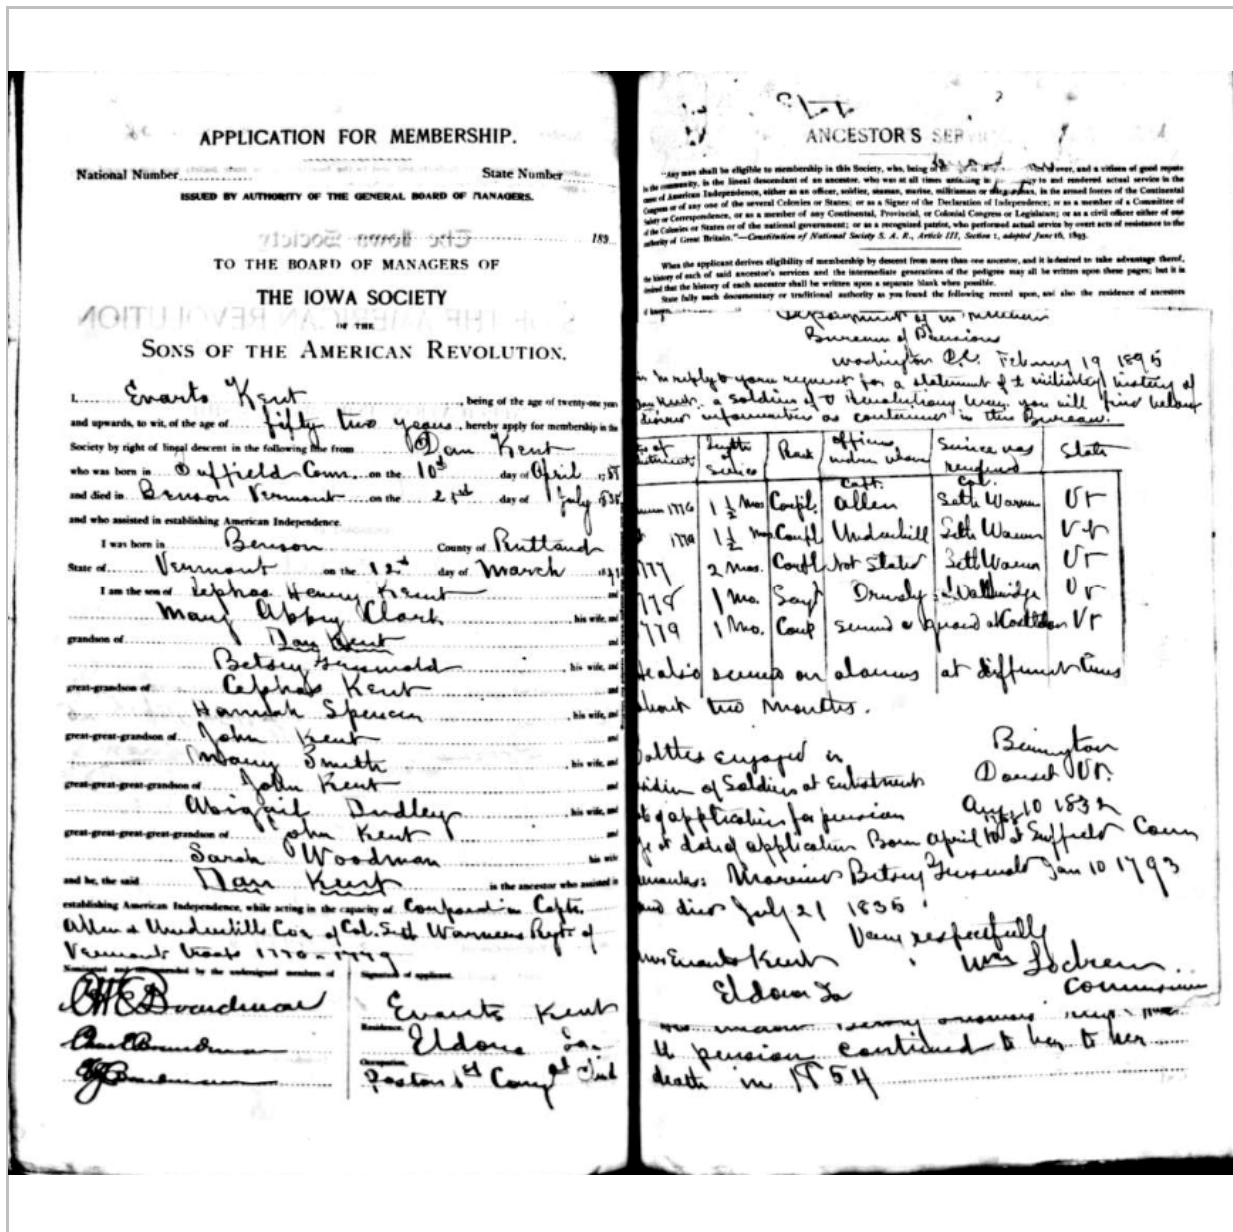 APPLICATION FOR MEMBERSHIP.
National Number
State Number
ISSUED BY AUTHORITY OF THE GENERAL BOARD OF MANAGERS.
The Iowa Society
189
TO THE BOARD OF MANAGERS OF
THE IOWA SOCIETY
OF THE
SONS OF THE AMERICAN REVOLUTION.
I, Evarts Kent, being of the age of twenty-one years
and upwards, to wit, of the age of fifty two years, hereby apply for membership in the
Society by right of lineal descent in the following line from Dan Kent
who was born in Suffield Conn. on the 10th day of April
and died in Benson Vermont on the 21st day of July 1835
and who assisted in establishing American Independence.
I was born in Benson County of Rutland
State of Vermont on the 12th day of March
I am the son of Cephas Henry Kent and
Mary Abby Clark his wife, and
grandson of Dan Kent
Betsey Griswold his wife, and
great-grandson of Cephas Kent and
Hannah Spencer, his wife, and
great-great-grandson of John Kent and
Mary Smith, his wife, and
great-great-great-grandson of John Kent and
Abigail Dudley his wife, and
great-great-great-great-grandson of John Kent and
Sarah Woodman his wife
and he, the said Dan Kent is the ancestor who assisted in
establishing American Independence, while acting in the capacity of Corporal in Capts.
Allen & Underhills Cos of Col. Seth Warners Regt of
Vermont troops
Nominated and recommended by the undersigned members of
Signature of applicant.
Boardman
Evarts Kent
Residence.
Eldora Ia.
Occupation.
Pastor 1st Cong'l
ANCESTOR'S SERVICE
"Any man shall be eligible to membership in this Society, who, being of the age of over, and a citizen of good repute
in the community, is the lineal descendant of an ancestor, who was at all times unfailing in loyalty to and rendered actual service in the
cause of American Independence, either as an officer, soldier, seaman, marine, militiaman or in the armed forces of the Continental
Congress or of any one of the several Colonies or States; or as a Signer of the Declaration of Independence; or as a member of a Committee of
Safety or Correspondence, or as a member of any Continental, Provincial, or Colonial Congress or Legislature; or as a civil officer either of one
of the Colonies or States or of the national government; or as a recognized patriot, who performed actual service by overt acts of resistance to the
authority of Great Britain."—Constitution of National Society S. A. R., Article III, Section 1, adopted June 16, 1893.
When the applicant derives eligibility of membership by descent from more than one ancestor, and it is desired to take advantage thereof,
the history of each of said ancestor's services and the intermediate generations of the pedigree may all be written upon these pages; but it is
desired that the history of each ancestor shall be written upon a separate blank when possible.
State fully such documentary or traditional authority as you found the following record upon, and also the residence of ancestors
if known.
Department of
Bureau of Pensions
Washington D.C. February 19 1895
in reply to your request for a statement of the military history of
Dan Kent, a soldier of the Revolutionary War, you will find below
information as contained in this Bureau.
length of service
Rank
officers under whom
Service was rendered
State
Capt.
Col.
1776 1 1/2 Mos Corpl. Allen Seth Warner Vt
1 1/2 Mos Corpl Underhill Seth Warner Vt
1777 2 mos. Corpl Not Stated Seth Warner Vt
1778 1 Mo. Sargt Walbridge Vt
1779 1 Mo. Corp served as guard at Castleton Vt
He also served on alarms at different times
about two months.
Battles engaged in Bennington
of Soldier at Enlistment Dorset Vt.
of application for pension Aug 10 1832
age at date of application Born April 10 at Suffield Conn
Remarks: Married Betsey Griswold Jan 10 1793
and died July 21 1835
Very respectfully
Evarts Kent
Wm Lochren
Eldora Ia
Commissioner
the pension continued to her to her
death in 1854